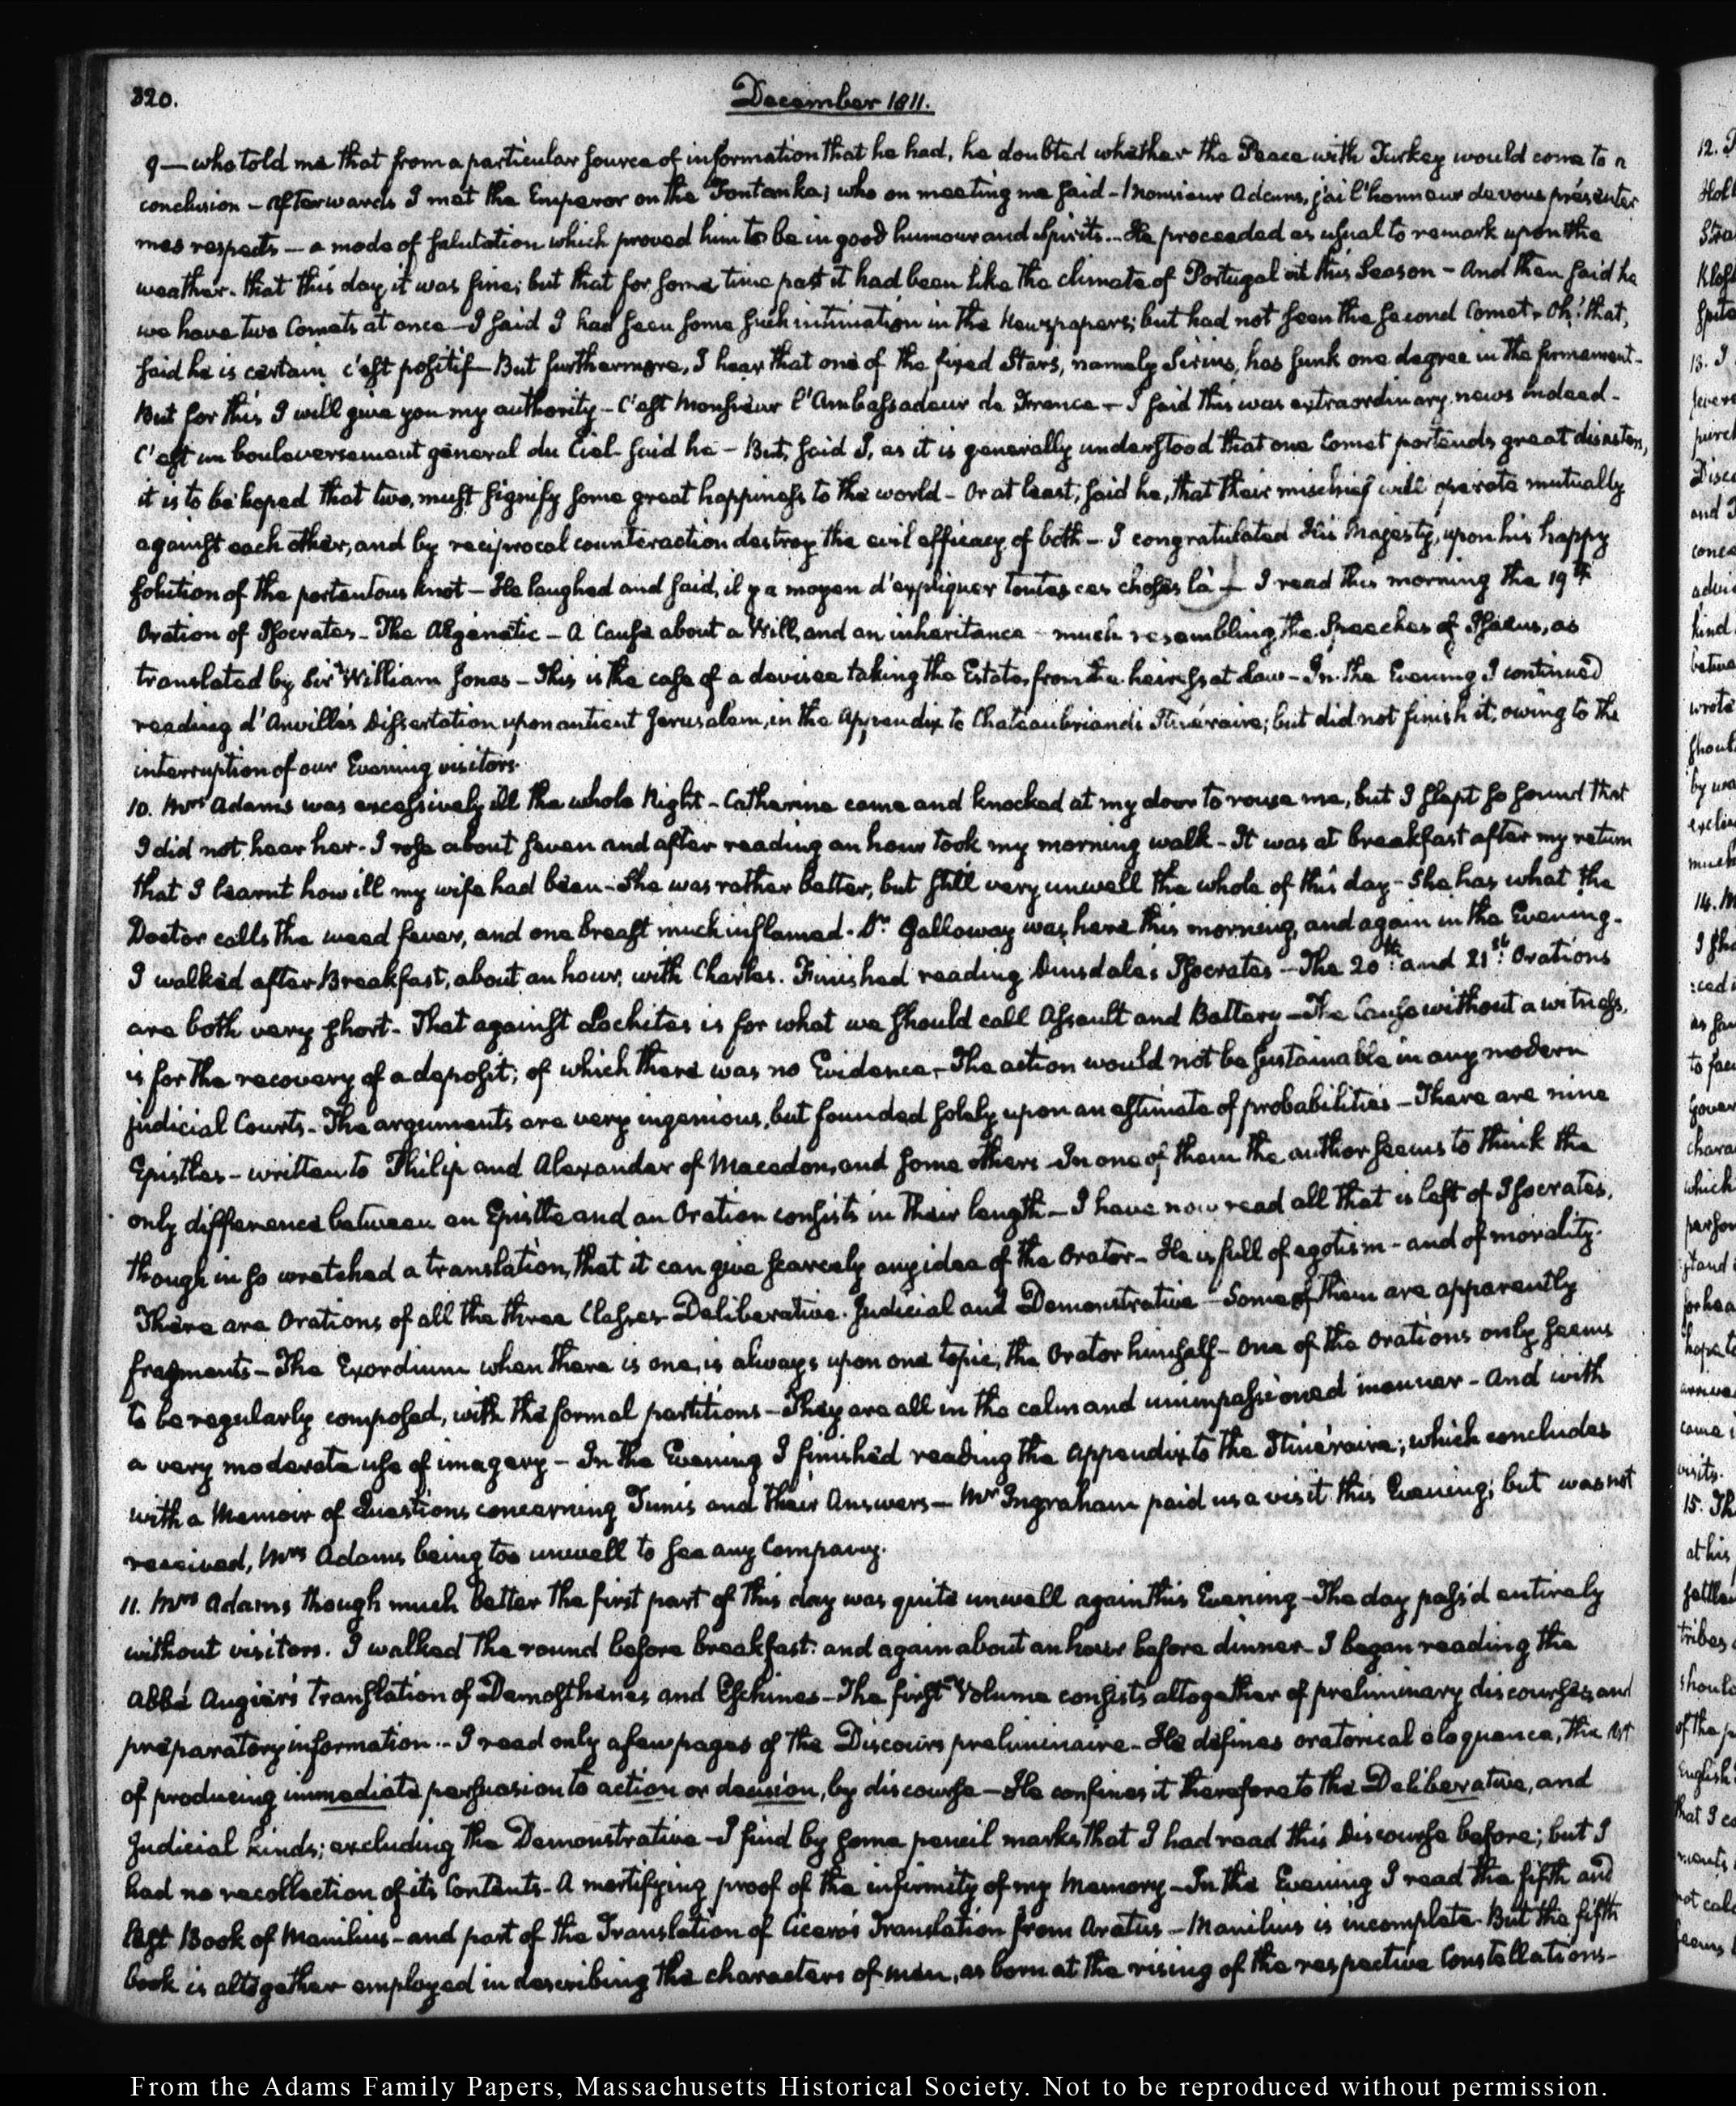 320.
December 1811.
9 — who told me that from a particular source of information that he had, he doubted whether the Peace with Turkey would come to a
conclusion — Afterwards I met the Emperor on the Fontanka; who on meeting me said — Monsieur Adams, j'ai l'honneur de vous présenter
mes respects — a mode of salutation which proved him to be in good humour and Spirits... He proceeded as usual to remark upon the
weather. that this day it was fine; but that for some time past it had been like the climate of Portugal at this Season — And then said he
we have two Comets at once — I said I had seen some such intimation in the Newspapers; but had not seen the second Comet. Oh! that,
said he is certain c'est positif — But furthermore, I hear that one of the fixed Stars, namely Sirius, has sunk one degree in the firmament —
But for this I will give you my authority — C'est Monsieur l'Ambassadeur de France — I said this was extraordinary news indeed —
C'est un bouleversement général du Ciel said he — But, said I, as it is generally understood that one Comet portends great disasters,
it is to be hoped that two, must signify some great happiness to the world — Or at least, said he, that their mischief will operate mutually
against each other, and by reciprocal counteraction destroy the evil efficacy of both — I congratulated His Majesty, upon his happy
solution of the portentous knot — He laughed and said, il y a moyen d'expliquer toutes ces choses là — I read this morning the 19th.
Oration of Isocrates — The Ægenetic — A Cause about a Will, and an inheritance — much resembling the Speeches of Isaeus, as
translated by Sir William Jones — This is the case of a devisee taking the Estate, from the heiress at Law — In the Evening I continued
reading d'Anville's Dissertation upon antient Jerusalem, in the Appendix to Chateaubriand's Itinéraire; but did not finish it, owing to the
interruption of our Evening visitors.
10. Mrs Adams was excessively ill the whole Night — Catherine came and knocked at my door to rouse me, but I slept so sound that
I did not hear her. I rose about seven and after reading an hour took my morning walk — It was at breakfast after my return
that I learnt how ill my wife had been — She was rather better, but still very unwell the whole of this day — She has what the
Doctor calls the weed fever, and one breast much inflamed. Dr. Galloway was here this morning, and again in the Evening.
I walked after Breakfast, about an hour, with Charles. Finished reading Dinsdale's Isocrates — The 20th. and 21st. Orations
are both very short — That against Lochites is for what we should call Assault and Battery — The Cause without a witness,
is for the recovery of a deposit; of which there was no Evidence — The action would not be sustainable in any modern
judicial Courts — The arguments are very ingenious, but founded solely upon an estimate of probabilities — There are nine
Epistles — written to Philip and Alexander of Macedon, and some others — In one of them the author seems to think the
only difference between an Epistle and an Oration consists in their length — I have now read all that is left of Isocrates,
though in so wretched a translation, that it can give scarcely any idea of the Orator — He is full of egotism — and of morality.
There are Orations of all the three Classes Deliberative. Judicial and Demonstrative — Some of them are apparently
fragments — The Exordium when there is one, is always upon one topic, the Orator himself — One of the Orations only seems
to be regularly composed, with the formal partitions — They are all in the calm and unimpassioned manner — And with
a very moderate use of imagery — In the Evening I finished reading the Appendix to the Itinéraire; which concludes
with a Memoir of Questions concerning Tunis and their Answers — Mr Ingraham paid us a visit this Evening; but was not
received, Mrs Adams being too unwell to see any Company.
11. Mrs Adams though much better the first part of this day was quite unwell again this Evening — The day pass'd entirely
without visitors. I walked the round before breakfast: and again about an hour before dinner — I began reading the
Abbé Augier's Translation of Demosthenes and Eschines — The first Volume consists altogether of preliminary discourses, and
preparatory information... I read only a few pages of the Discours preliminaire — He defines oratorical eloquence, the art
of producing immediate persuasion to action or decision, by discourse — He confines it therefore to the Deliberative, and
Judicial kinds; excluding the Demonstrative — I find by some pencil marks that I had read this Discourse before; but I
had no recollection of its Contents — A mortifying proof of the infirmity of my Memory — In the Evening I read the fifth and
last Book of Manilius — and part of the Translation of Cicero's Translation from Aratus — Manilius is incomplete. But the fifth
book is altogether employed in describing the characters of men, as born at the rising of the respective Constellations —
From the Adams Family Papers, Massachusetts Historical Society. Not to be reproduced without permission.